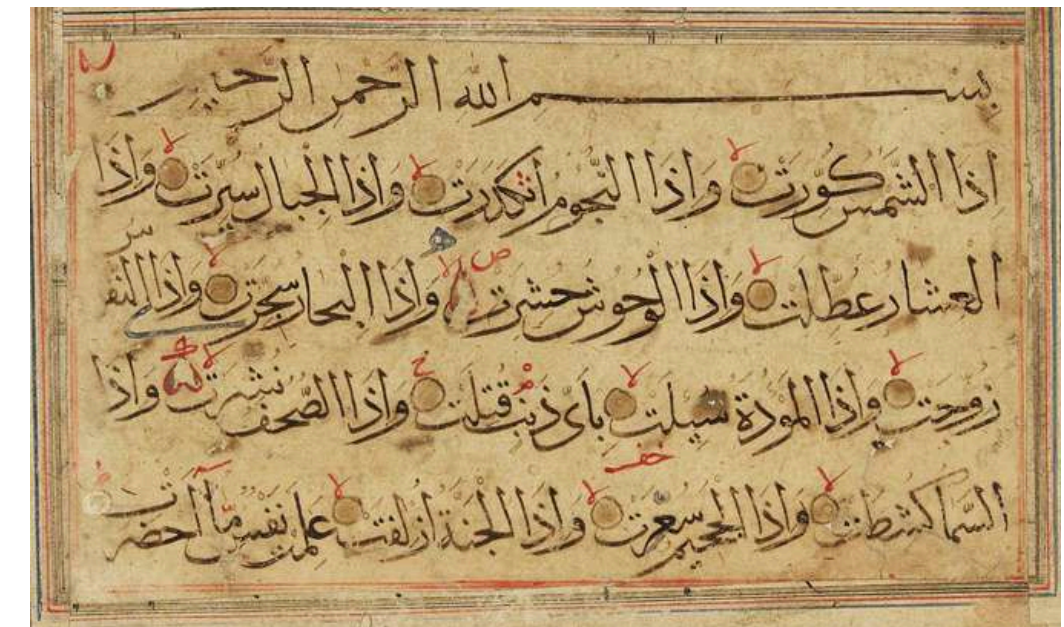 بسم الله الرحمن الرحيم
اذا الشمس كورت واذا النجوم انكدرت واذا الجبال سيرت واذا
العشار عطلت واذا الوحوش حشرت واذا البحار سجرت واذا النفوس
زوجت واذا الموودة سيلت باى ذنب قتلت واذا الصحف نشرت واذا
السما كشطت واذا الجحيم سعرت واذا الجنة ازلفت علمت نفس ما احضرت